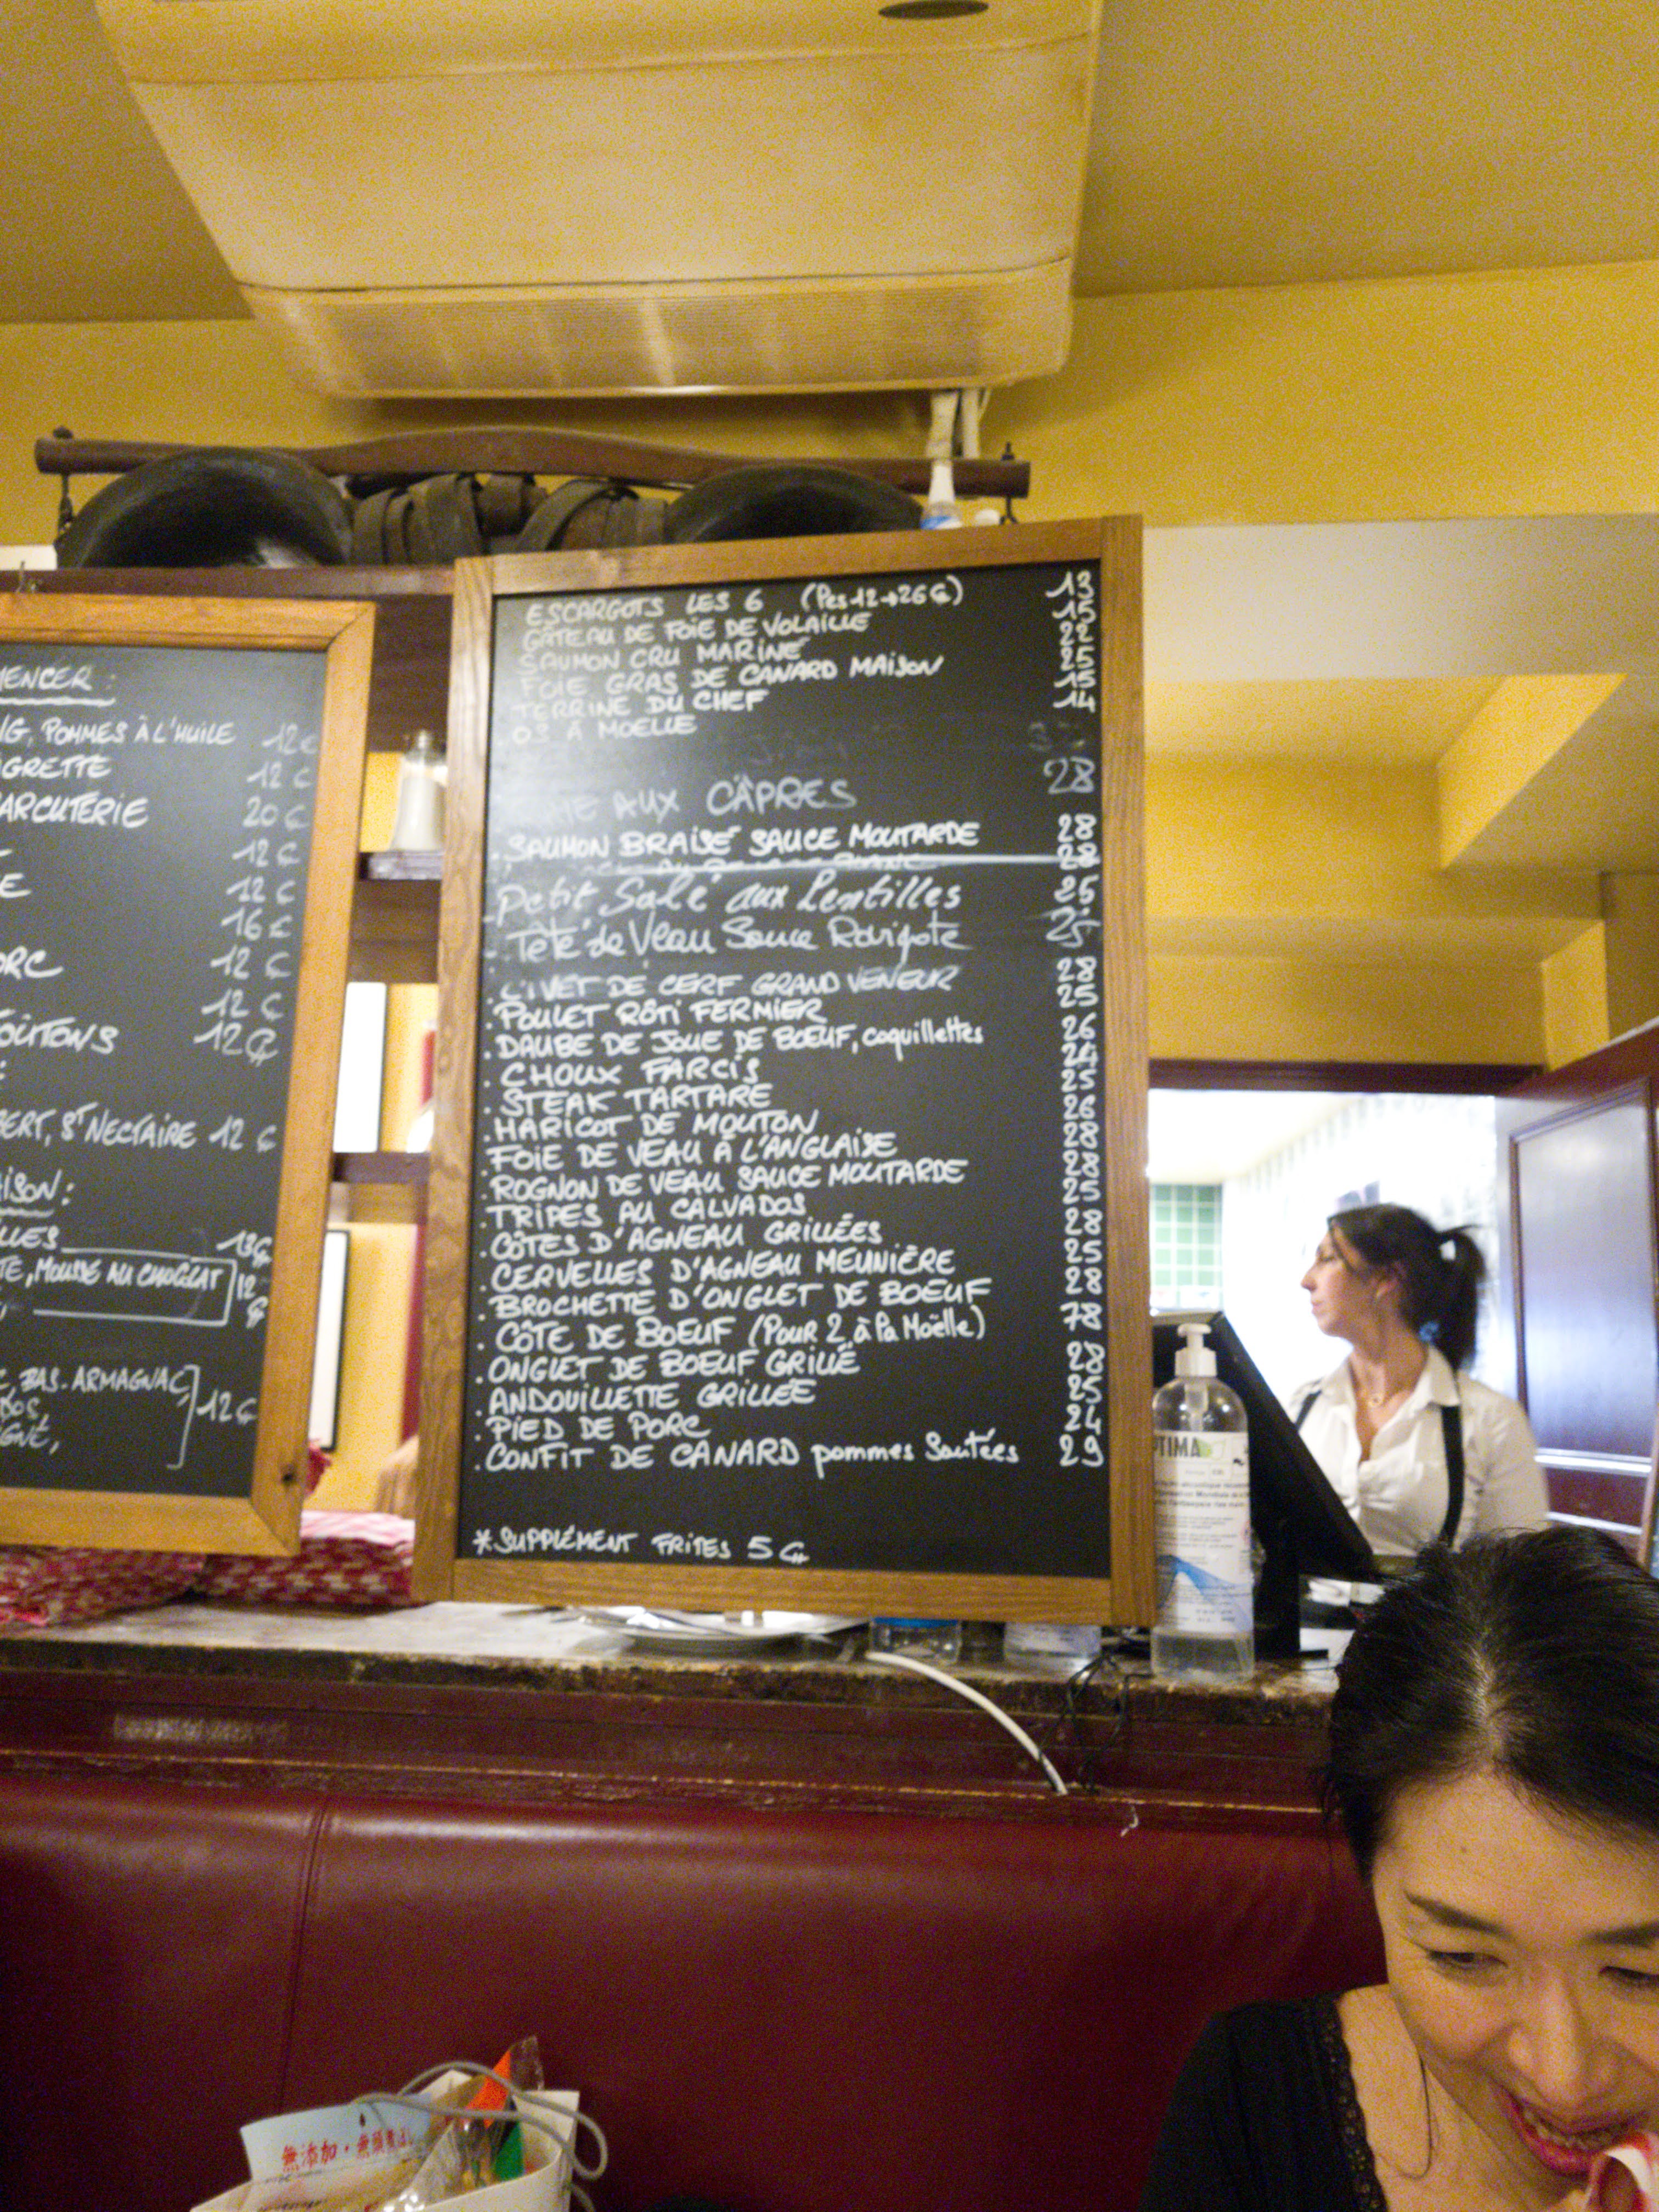 MENCER :
NG, POMMES À L'HUILE 12€
IGRETTE 12€
ARCUTERIE 20€
12€
E 12€
16€
ORC 12€
12€
OÛTONS 12€
:
BERT, ST NECTAIRE 12€
AISON :
LLES 13€
TE, MOUSSE AU CHOCOLAT 12€
BAS-ARMAGNAC,
DOS 12€
IGNE,
ESCARGOTS LES 6 (Pes 12→26€) 13
GÂTEAU DE FOIE DE VOLAILLE 15
SAUMON CRU MARINÉ 22
FOIE GRAS DE CANARD MAISON 25
TERRINE DU CHEF 15
OS À MOELLE 14
AUX CÂPRES 28
. SAUMON BRAISÉ SAUCE MOUTARDE 28
28
Petit Salé aux Lentilles 25
Tête de Veau Sauce Ravigote 25
. CIVET DE CERF GRAND VENEUR 28
. POULET RÔTI FERMIER 25
. DAUBE DE JOUE DE BOEUF, coquillettes 26
. CHOUX FARCIS 24
. STEAK TARTARE 25
. HARICOT DE MOUTON 26
. FOIE DE VEAU À L'ANGLAISE 28
. ROGNON DE VEAU SAUCE MOUTARDE 28
. TRIPES AU CALVADOS 25
. CÔTES D'AGNEAU GRILLÉES 28
. CERVELLES D'AGNEAU MEUNIÈRE 25
. BROCHETTE D'ONGLET DE BOEUF 28
. CÔTE DE BOEUF (Pour 2 à la Moëlle) 78
. ONGLET DE BOEUF GRILLÉ 28
. ANDOUILLETTE GRILLÉE 25
. PIED DE PORC 24
. CONFIT DE CANARD pommes Sautées 29
* SUPPLÉMENT FRITES 5€
PTIMA
無添加・無